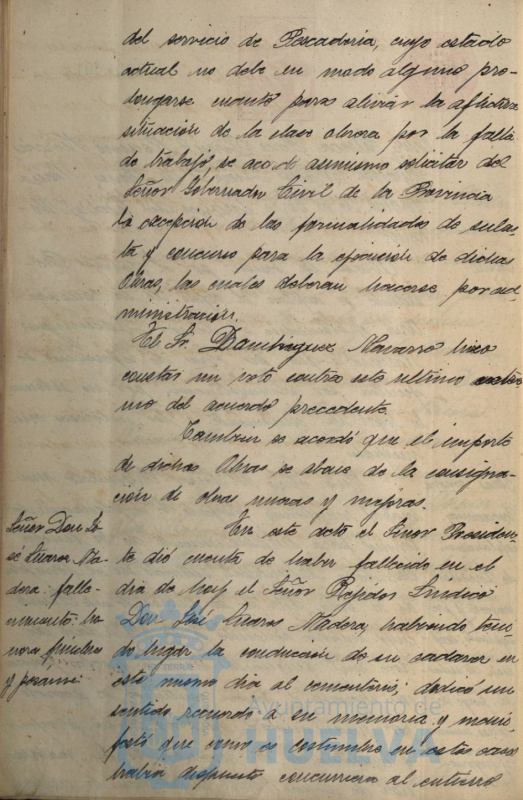 del servicio de Pescaderia, cuyo estado
actual no debe en modo alguno pro-
longarse cuanto para aliviar la aflictiva
situación de la clase obrera por la falta
de trabajo, se acordó asimismo solicitar del
Señor Gobernador Civil de la Provincia
la excepción de las formalidades de subas-
ta y concurso para la ejecución de dichas
Obras, las cuales deberan hacerse por ad-
ministración.
El Sr. Dominguez Navarro hizo
constar un voto contra este ultimo extre-
mo del acuerdo precedente.
Tambien se acordó que el importe
de dichas Obras se abone de la consigna-
ción de obras nuevas y mejoras.
Señor Don Jo-
sé Suarez Ma-
dera: falle-
cimiento: ho-
nores funebres
y pesame:
En este acto el Señor Presiden-
te dió cuenta de haber fallecido en el
dia de hoy el Señor Regidor Sindico
Don José Suarez Madera, habiendo teni-
do lugar la conducción de su cadaver en
este mismo dia al cementerio; dedicó un
sentido recuerdo a su memoria y mani-
festó que como es costumbre en estos casos
habia dispuesto concurriera al entierro
Ayuntamiento de
HUELVA